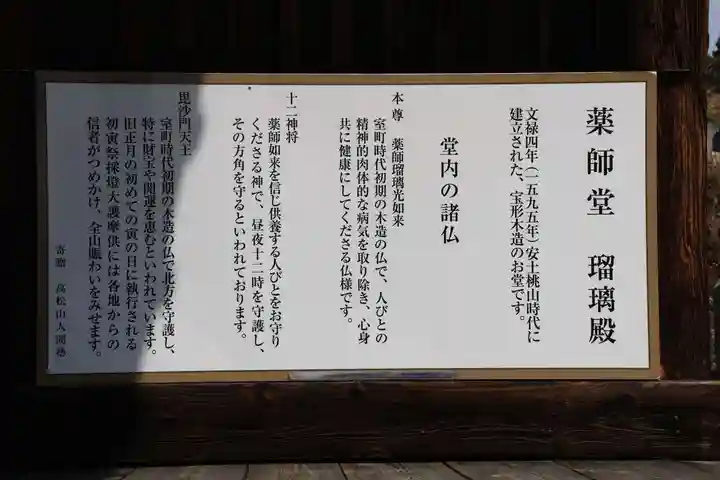 薬師堂　瑠璃殿
文禄四年（一五九五年）安土桃山時代に
建立された、宝形木造のお堂です。
堂内の諸仏
本尊　薬師瑠璃光如来
室町時代初期の木造の仏で、人びとの
精神的肉体的な病気を取り除き、心身
共に健康にしてくださる仏様です。
十二神将
薬師如来を信じ供養する人びとをお守り
くださる神で、昼夜十二時を守護し、
その方角を守るといわれております。
毘沙門天王
室町時代初期の木造の仏で北方を守護し、
特に財宝や開運を恵むといわれています。
旧正月の初めての寅の日に執行される
初寅祭採燈大護摩供には各地からの
信者がつめかけ、全山賑わいをみせます。
寄贈　高松山人間塾